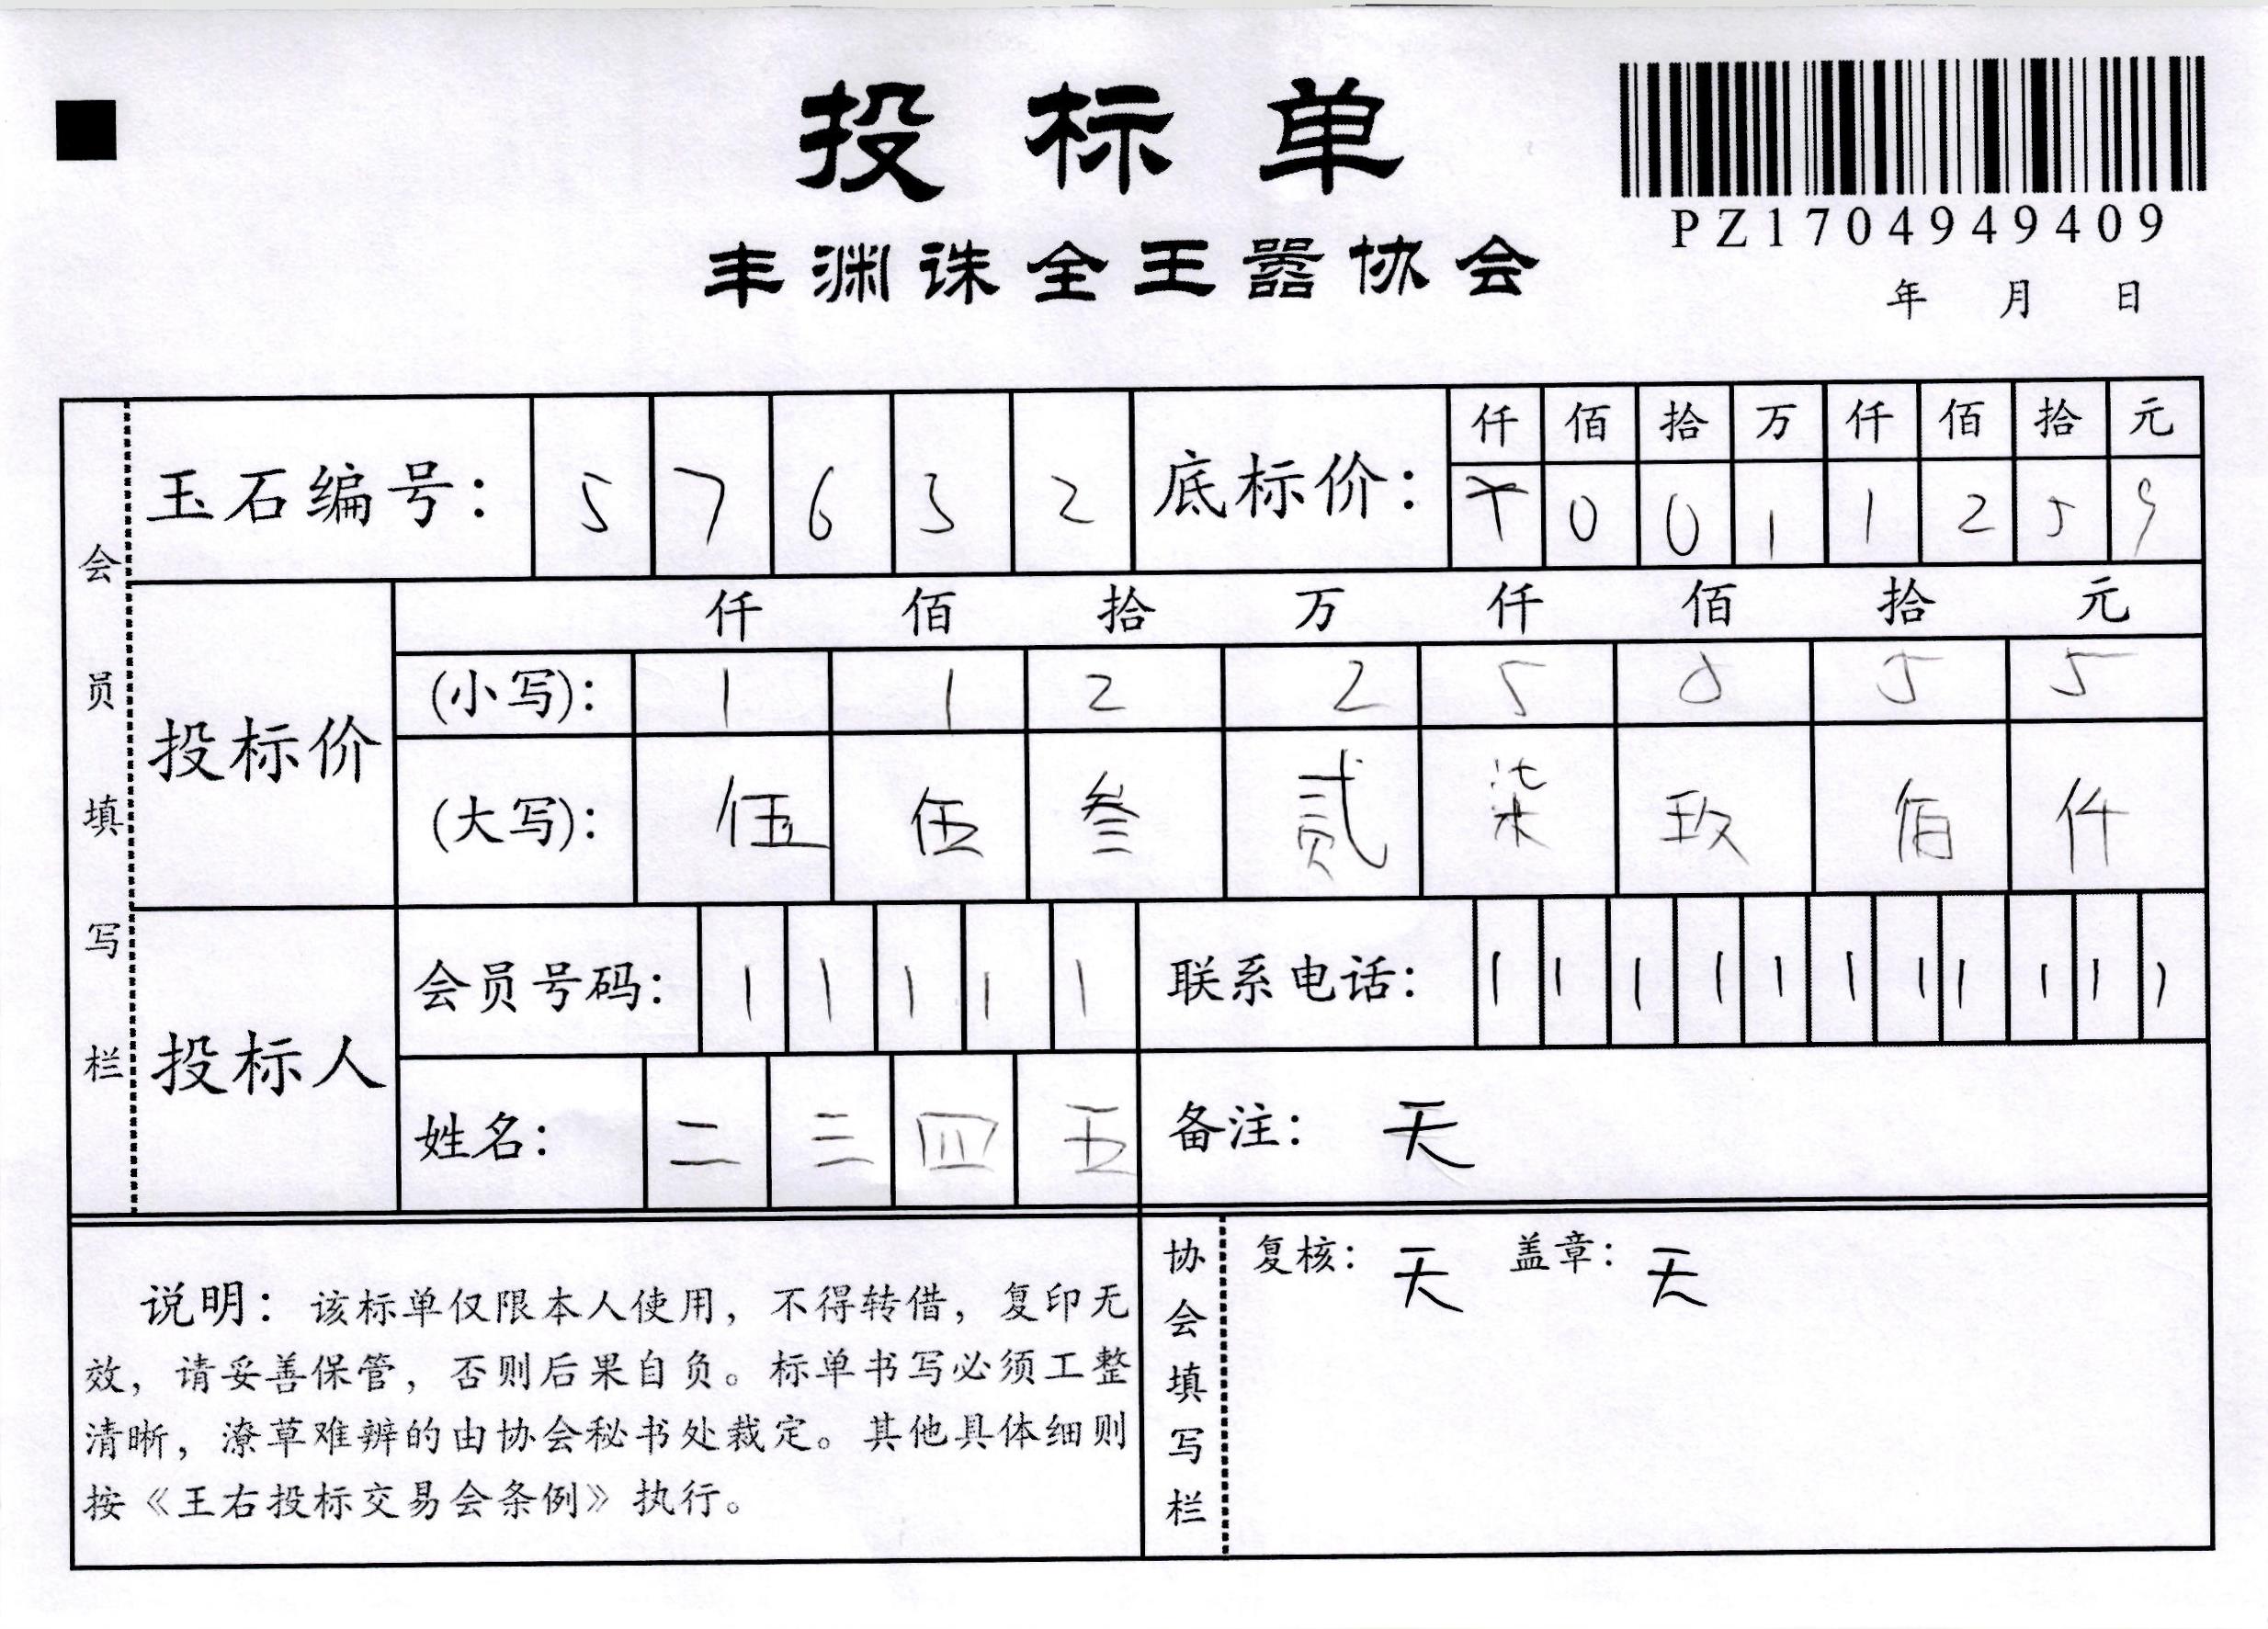 投标单
PZ1704949409
丰渊诛全王嚣协会
年 月 日
会员填写栏
玉石编号: 5 7 6 3 2
底标价: 仟 佰 拾 万 仟 佰 拾 元
0 0 1 1 2 5 9
投标价
仟 佰 拾 万 仟 佰 拾 元
(小写): 1 1 2 2 5 0 5 5
(大写): 伍 伍 叁 贰 柒 玖 佰 仟
投标人
会员号码: 1 1 1 1 1
联系电话: 1 1 1 1 1 1 1 1 1 1 1
姓名: 二 三 四 五
备注: 天
说明: 该标单仅限本人使用, 不得转借, 复印无
效, 请妥善保管, 否则后果自负。标单书写必须工整
清晰, 潦草难辨的由协会秘书处裁定。其他具体细则
按《王右投标交易会条例》执行。
协会填写栏
复核: 天 盖章: 天